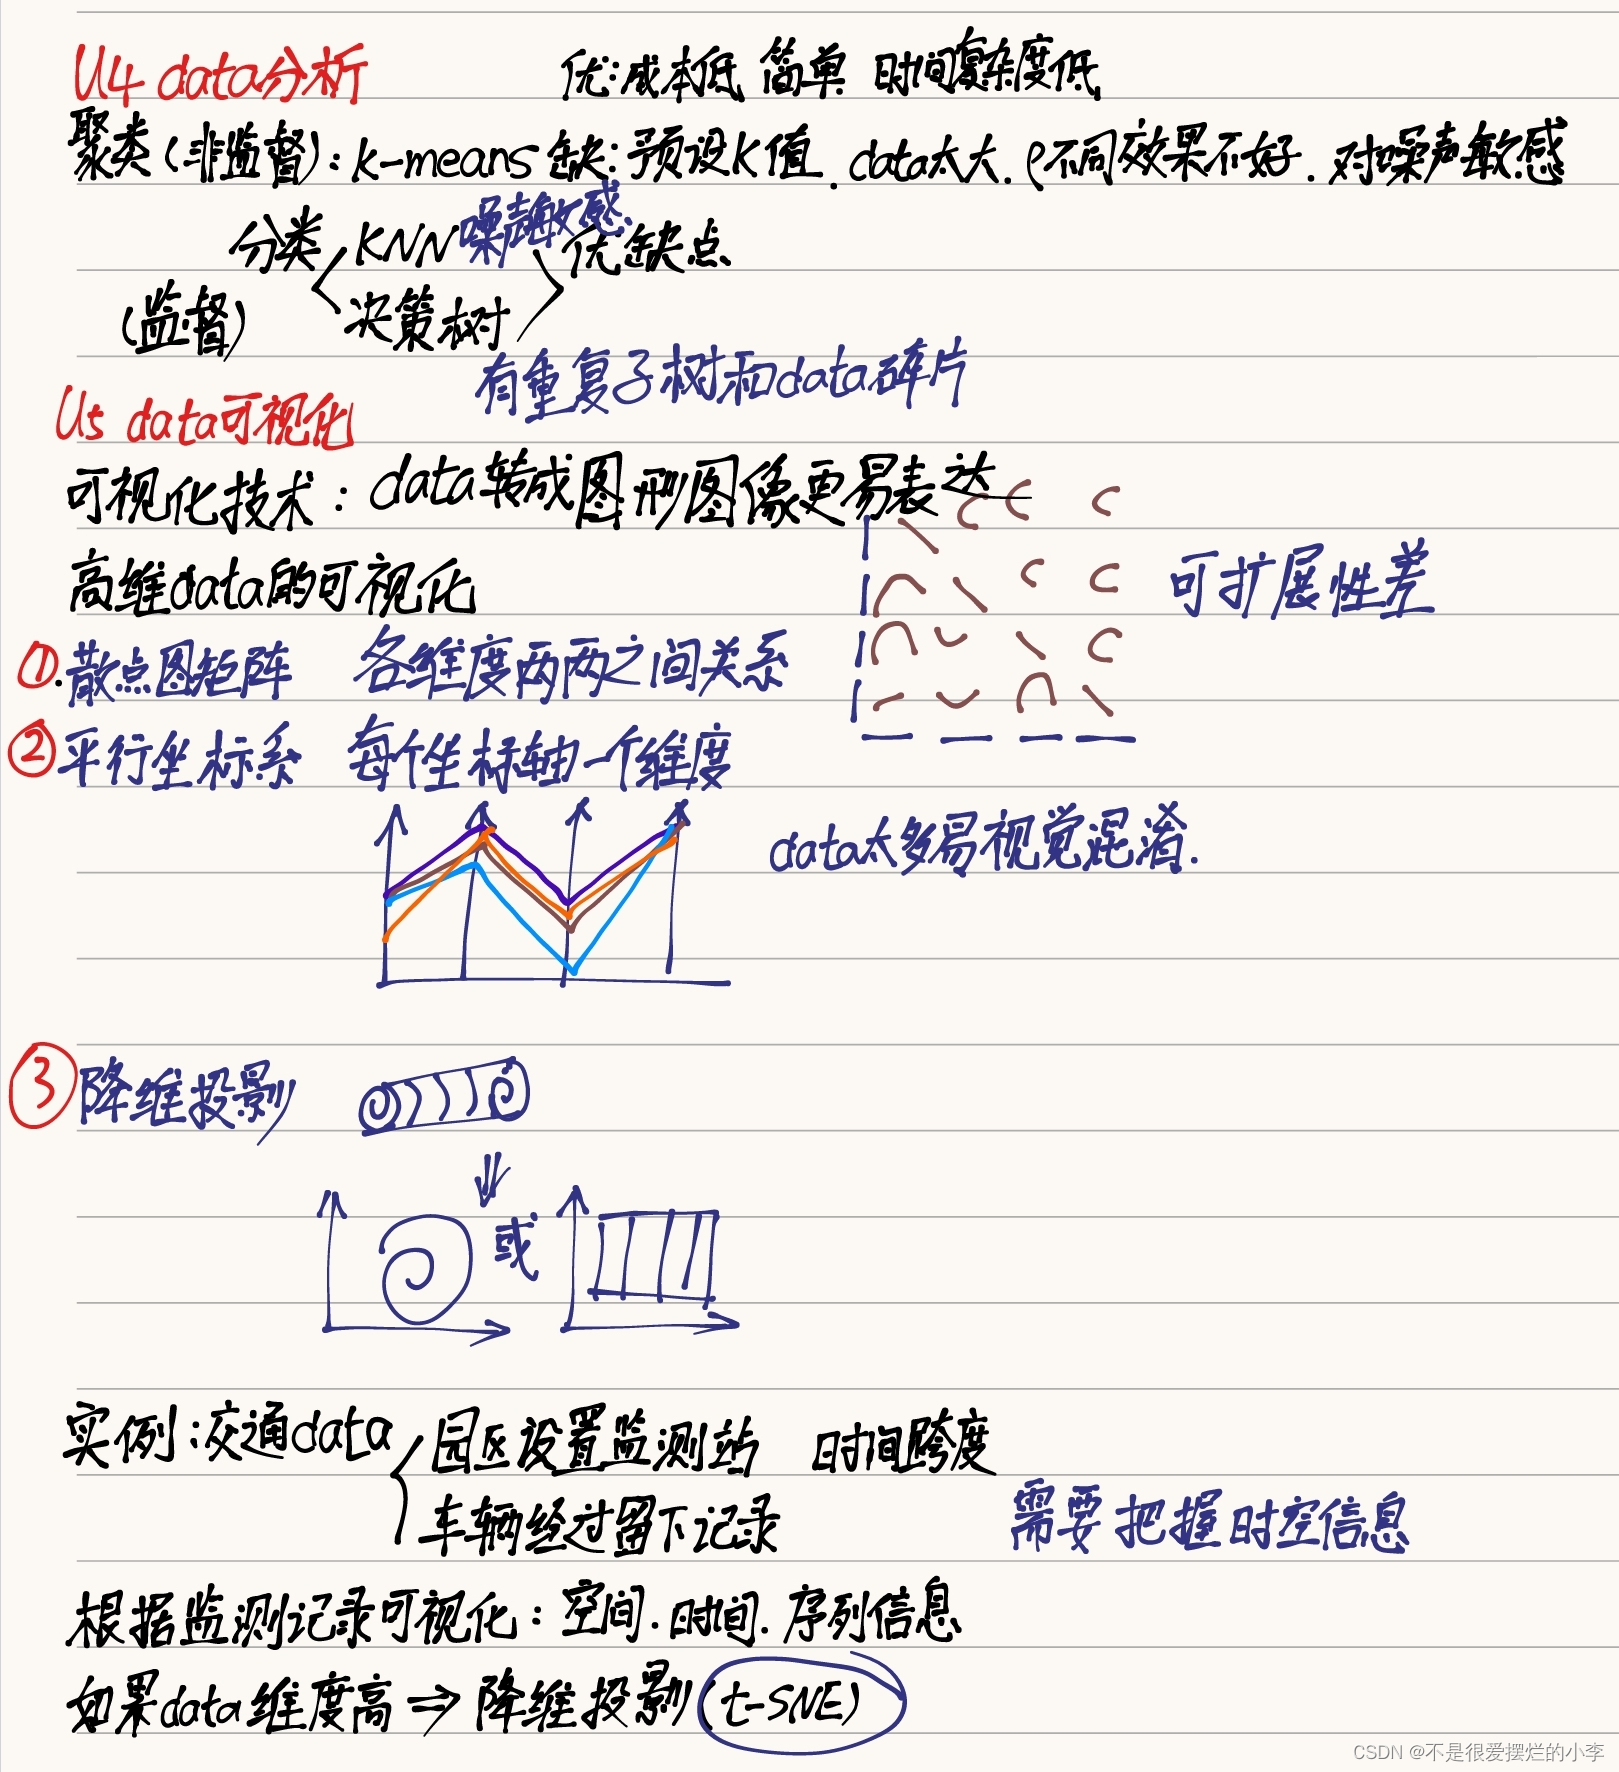 U4 data分析
优:成本低 简单 时间复杂度低
聚类(非监督):k-means 缺:预设K值.data太大.ρ不同效果不好.对噪声敏感
分类 KNN 噪声敏感. 优缺点
(监督) 决策树
有重复子树和data碎片
U5 data可视化
可视化技术:data转成图形图像更易表达
高维data的可视化
可扩展性差
①.散点图矩阵 各维度两两之间关系
②平行坐标系 每个坐标轴一个维度
data太多易视觉混淆.
③降维投影
或
实例:交通data 园区设置监测站 时间跨度
车辆经过留下记录
需要把握时空信息
根据监测记录可视化:空间.时间.序列信息
如果data维度高⇒降维投影(t-SNE)
CSDN @不是很爱摆烂的小李